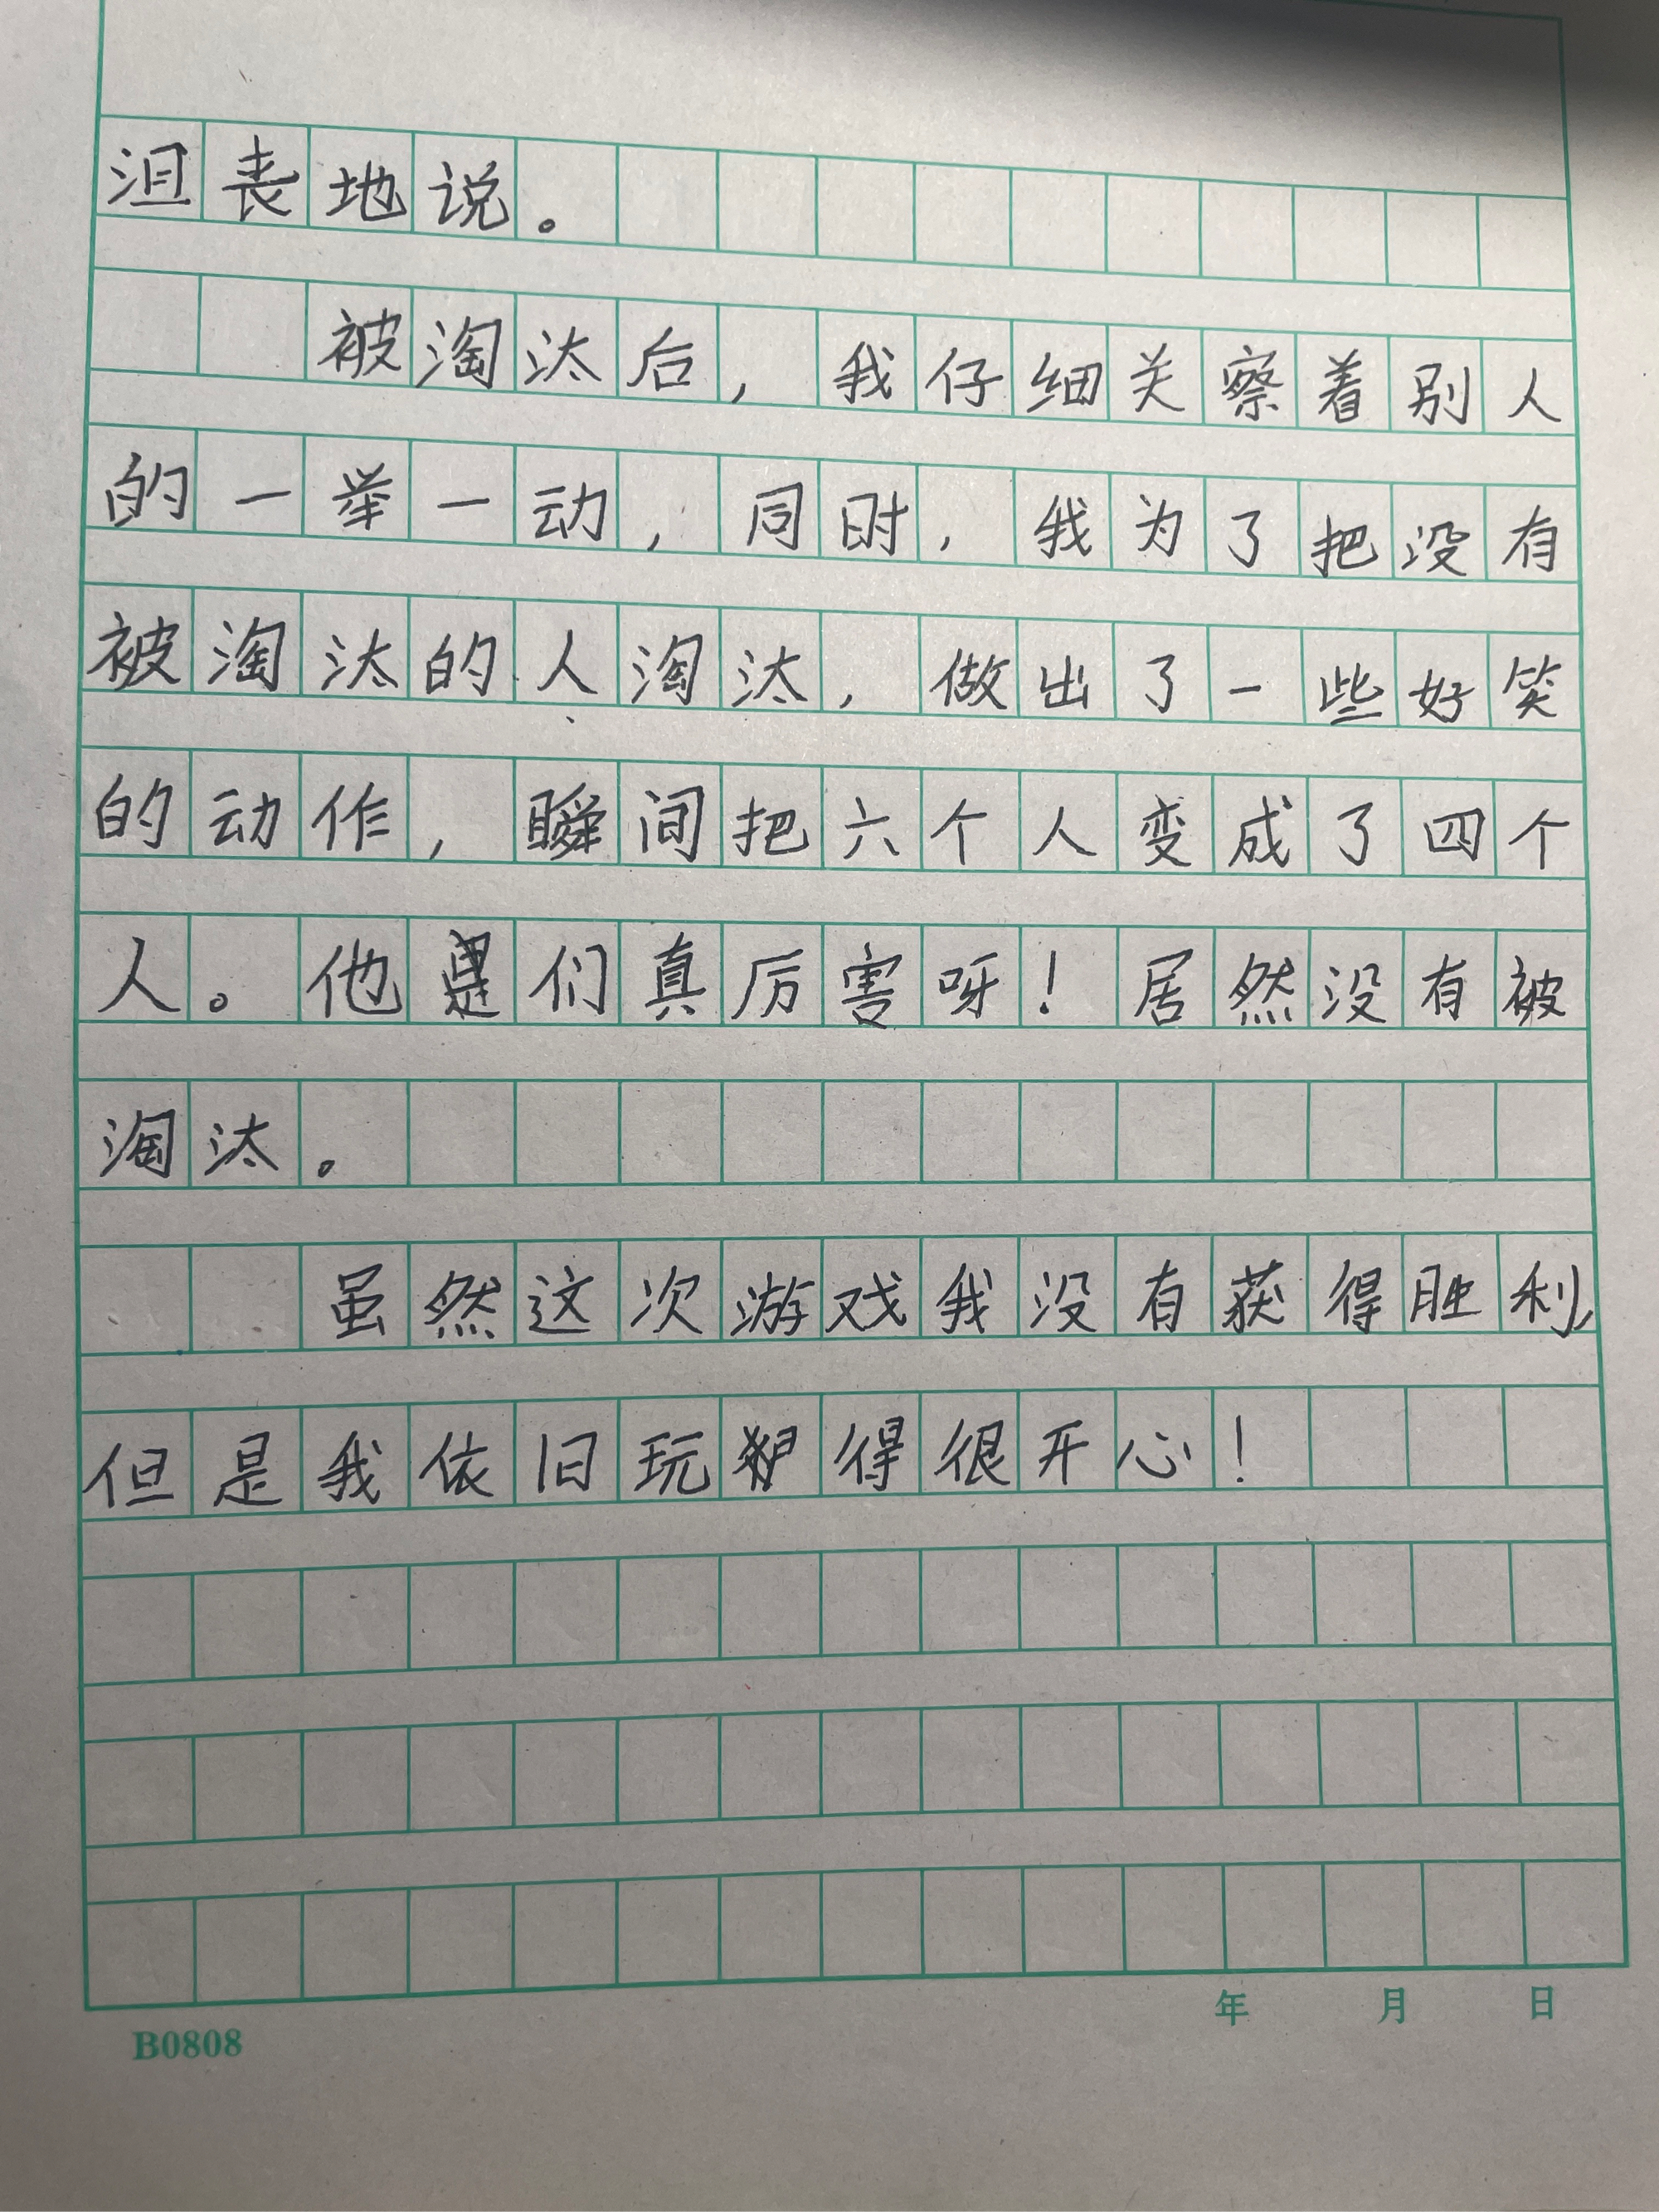 沮丧地说。
被淘汰后，我仔细关察着别人
的一举一动，同时，我为了把没有
被淘汰的人淘汰，做出了一些好笑
的动作，瞬间把六个人变成了四个
人。他们真厉害呀！居然没有被
淘汰。
虽然这次游戏我没有获得胜利，
但是我依旧玩得很开心！
年 月 日
B0808